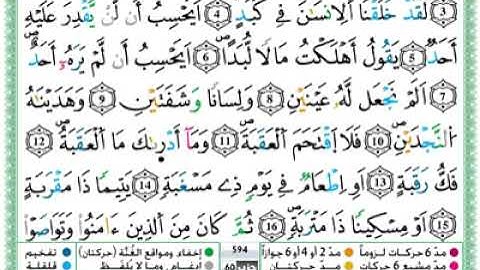 3 لَقَدْ خَلَقْنَا اَلِانسَٰنَ فِے كَبَدٍ 4 اَيَحْسِبُ أَن لَّنْ يَّقْدِرَ عَلَيْهِ
أَحَدٌ 5 يَقُولُ أَهْلَكْتُ مَالاً لُّبَداً 6 اَيَحْسِبُ أَن لَّمْ يَرَهُۥ أَحَدٌ
7 اَلَمْ نَجْعَل لَّهُۥ عَيْنَيْنِ 8 وَلِسَاناً وَشَفَتَيْنِ 9 وَهَدَيْنَٰهُ
اُلنَّجْدَيْنِ 10 فَلَا اَقْتَحَمَ اَلْعَقَبَةَ 11 وَمَآ أَدْر۪ىٰكَ مَا اَلْعَقَبَةُ 12
فَكُّ رَقَبَةٍ 13 اَوِ اِطْعَٰمٌ فِے يَوْمٍ ذِے مَسْغَبَةٍ 14 يَتِيماً ذَا مَقْرَبَةٍ
15 اَوْ مِسْكِيناً ذَا مَتْرَبَةٍ 16 ثُمَّ كَانَ مِنَ اَلذِينَ ءَامَنُواْ وَتَوَاصَوْاْ
مدّ 6 حركات لزوماً مدّ 2 أو 4 أو 6 جوازاً 594 إخفاء، ومواقع الغُنَّة (حركتان) تفخيم
مدّ مشبع 6 حركات مدّ حركتان 60 إدغام، وما لا يُلفَظ قلقلة